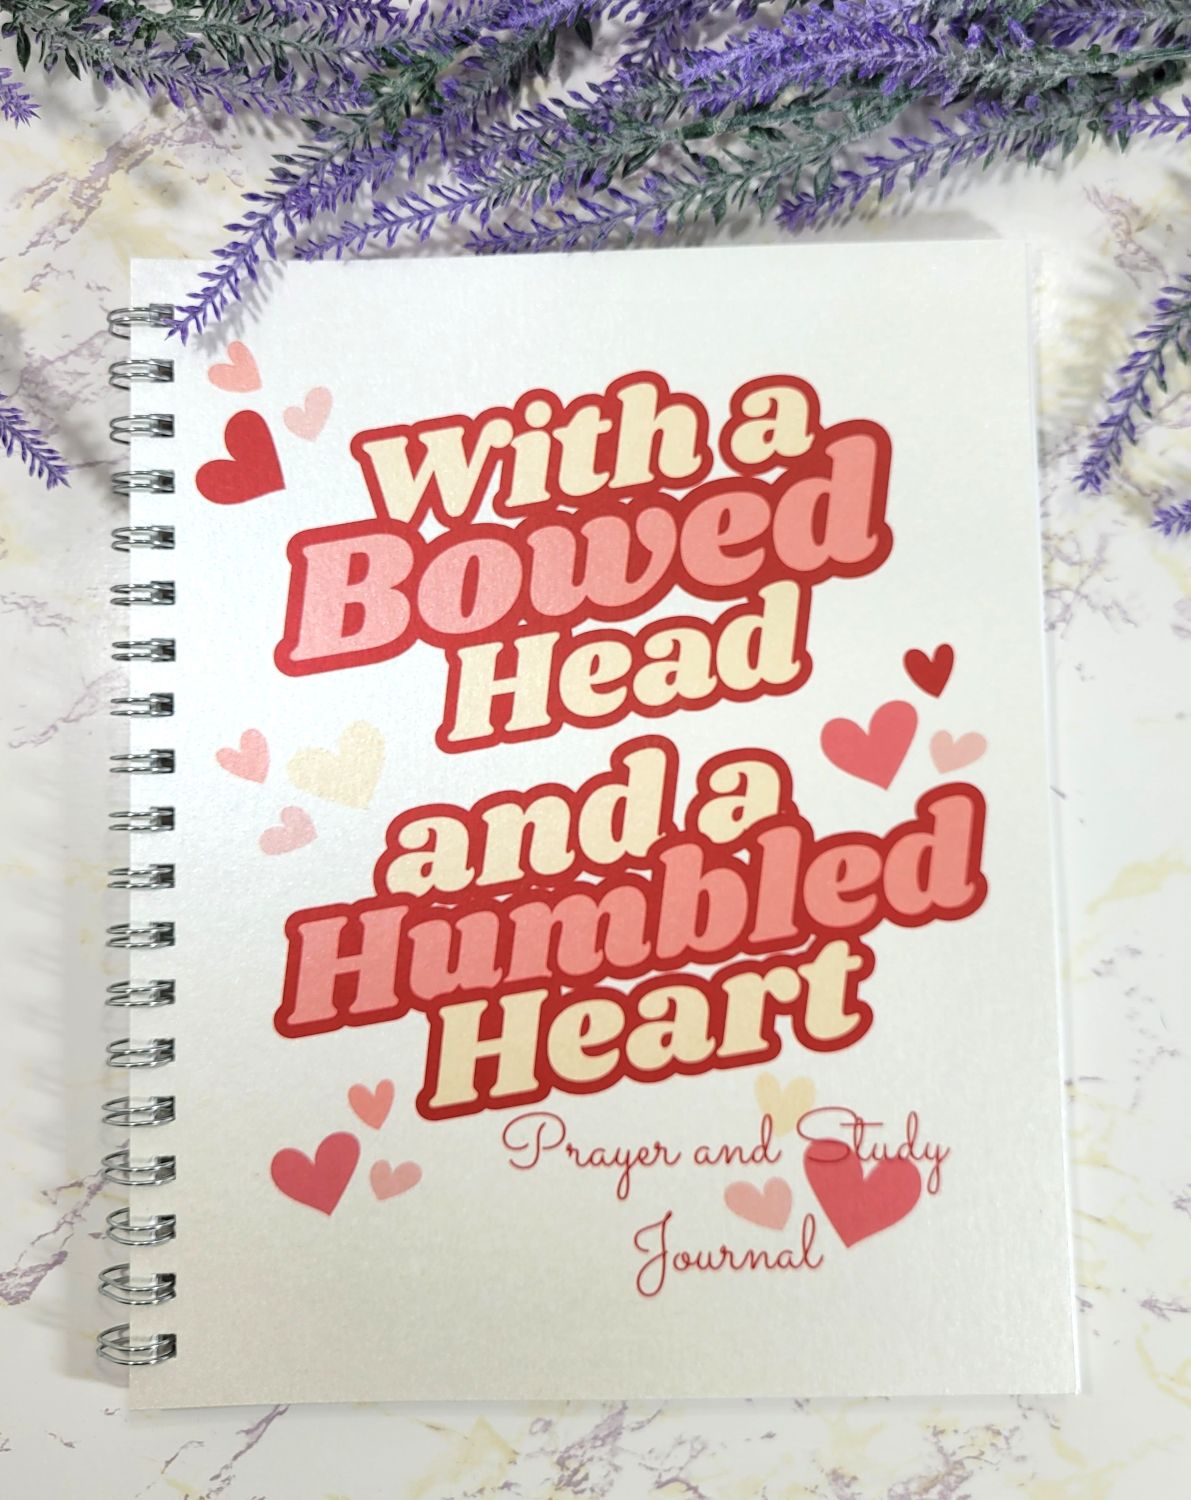 With a
Bowed
Head
and a
Humbled
Heart
Prayer and Study
Journal